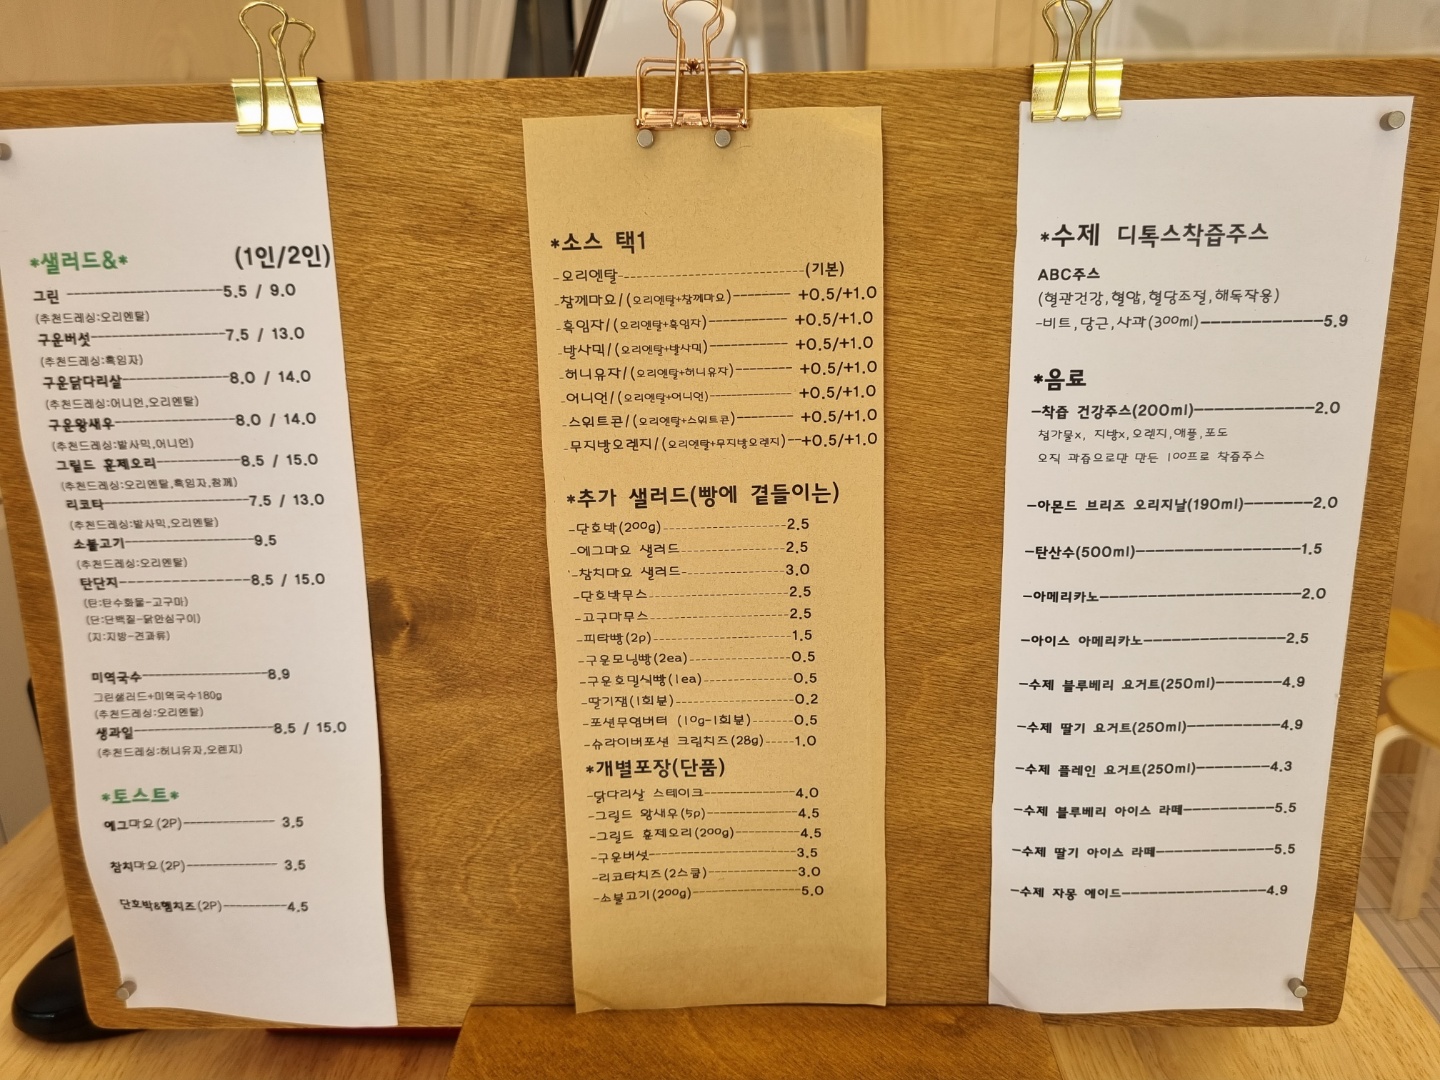 *샐러드&* (1인/2인)
그린 5.5 / 9.0
(추천드레싱:오리엔탈)
구운버섯 7.5 / 13.0
(추천드레싱:흑임자)
구운닭다리살 8.0 / 14.0
(추천드레싱:어니언,오리엔탈)
구운왕새우 8.0 / 14.0
(추천드레싱:발사믹,어니언)
그릴드 훈제오리 8.5 / 15.0
(추천드레싱:오리엔탈,흑임자,참깨)
리코타 7.5 / 13.0
(추천드레싱:발사믹,오리엔탈)
소불고기 9.5
(추천드레싱:오리엔탈)
탄단지 8.5 / 15.0
(탄:탄수화물-고구마)
(단:단백질-닭안심구이)
(지:지방-견과류)
미역국수 8.9
그린샐러드+미역국수180g
(추천드레싱:오리엔탈)
생과일 8.5 / 15.0
(추천드레싱:허니유자,오렌지)
*토스트*
에그마요(2P) 3.5
참치마요(2P) 3.5
단호박&햄치즈(2P) 4.5
*소스 택1
-오리엔탈 (기본)
-참깨마요/(오리엔탈+참깨마요) +0.5/+1.0
-흑임자/(오리엔탈+흑임자) +0.5/+1.0
-발사믹/(오리엔탈+발사믹) +0.5/+1.0
-허니유자/(오리엔탈+허니유자) +0.5/+1.0
-어니언/(오리엔탈+어니언) +0.5/+1.0
-스위트콘/(오리엔탈+스위트콘) +0.5/+1.0
-무지방오렌지/(오리엔탈+무지방오렌지) +0.5/+1.0
*추가 샐러드(빵에 곁들이는)
-단호박(200g) 2.5
-에그마요 샐러드 2.5
-참치마요 샐러드 3.0
-단호박무스 2.5
-고구마무스 2.5
-피타빵(2p) 1.5
-구운모닝빵(2ea) 0.5
-구운호밀식빵(1ea) 0.5
-딸기잼(1회분) 0.2
-포션무염버터 (10g-1회분) 0.5
-슈라이버포션 크림치즈(28g) 1.0
*개별포장(단품)
-닭다리살 스테이크 4.0
-그릴드 왕새우(5p) 4.5
-그릴드 훈제오리(200g) 4.5
-구운버섯 3.5
-리코타치즈(2스쿱) 3.0
-소불고기(200g) 5.0
*수제 디톡스착즙주스
ABC주스
(혈관건강,혈압,혈당조절,해독작용)
-비트,당근,사과(300ml) 5.9
*음료
-착즙 건강주스(200ml) 2.0
첨가물x, 지방x,오렌지,애플,포도
오직 과즙으로만 만든 100프로 착즙주스
-아몬드 브리즈 오리지날(190ml) 2.0
-탄산수(500ml) 1.5
-아메리카노 2.0
-아이스 아메리카노 2.5
-수제 블루베리 요거트(250ml) 4.9
-수제 딸기 요거트(250ml) 4.9
-수제 플레인 요거트(250ml) 4.3
-수제 블루베리 아이스 라떼 5.5
-수제 딸기 아이스 라떼 5.5
-수제 자몽 에이드 4.9